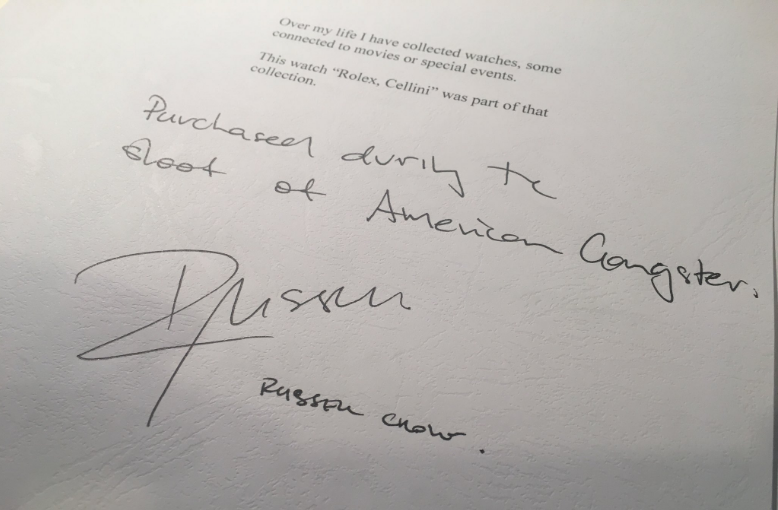 Over my life I have collected watches, some
connected to movies or special events.
This watch “Rolex, Cellini” was part of that
collection.
Purchased during the
shoot of American Gangster.
Russell
RUSSELL CROWE.